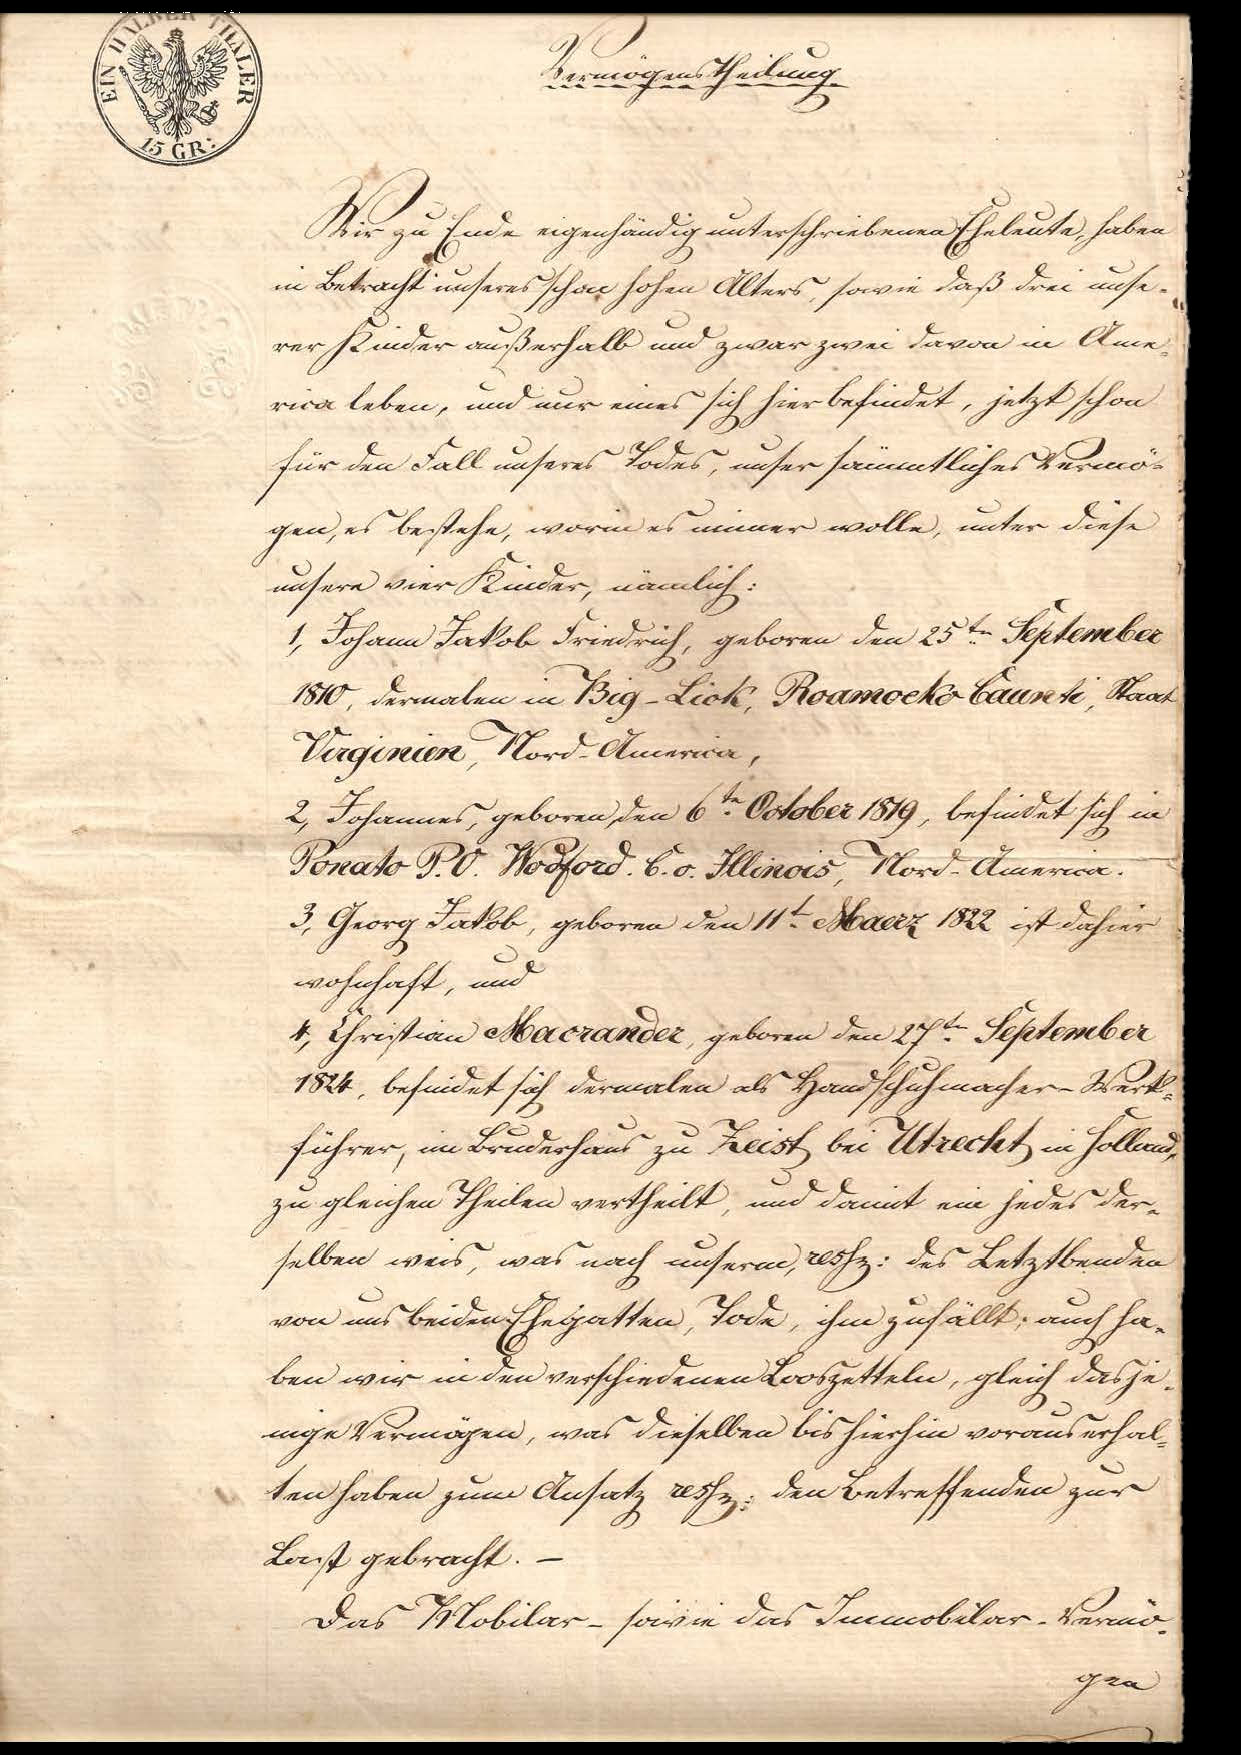 EIN HALBER THALER
15 GR:
Vermögenstheilung
Wir zu Ende eigenhändig unterschriebenen Eheleute, haben
in Betracht unseres schon hohen Alters, sowie daß drei unse-
rer Kinder außerhalb und zwar zwei davon in Ame-
rica leben, und nur eines sich hier befindet, jetzt schon
für den Fall unseres Todes, unser sämmtliches Vermö-
gen, es bestehe, worin es immer wolle, unter diese
unsere vier Kinder, nämlich:
1, Johann Jakob Friedrich, geboren den 25ten September
1810, dermalen in Big-Lick, Roamocko Caunti, Staat
Virginien, Nord-America,
2, Johannes, geboren, den 6ten October 1819, befindet sich in
Ponato P.O. Wodford. C.o. Illinois, Nord-America.
3, Georg Jakob, geboren den 11t Maerz 1822 ist dahier
wohnhaft, und
4, Christian Macrander, geboren den 27ten September
1824, befindet sich dermalen als Handschuhmacher-Werk-
führer, im Bruderhaus zu Zeist bei Utrecht in Holland,
zu gleichen Theilen vertheilt, und damit ein jedes der-
selben weis, was nach unserm, resp: des Letztlbenden
von uns beiden Ehegatten, Tode, ihm zufällt; auch ha-
ben wir in den verschiedenen Looszetteln, gleich dasje-
nige Vermögen, was dieselben bis hierhin voraus erhal-
ten haben zum Ansatz resp: den Betreffenden zur
Last gebracht. –
Das Mobilar- sowie das Immobilar-Vermö-
gen